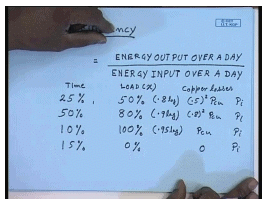 ncy
= ENERGY OUTPUT OVER A DAY
ENERGY INPUT OVER A DAY
Time LOAD(%) Copper losses
25%, 50% (.8 lag) (.5)² Pcu Pi
50% 80% (.9 lag) (.8)² Pcu Pi
10% 100% (.95 lag) Pcu Pi
15% 0% 0 Pi